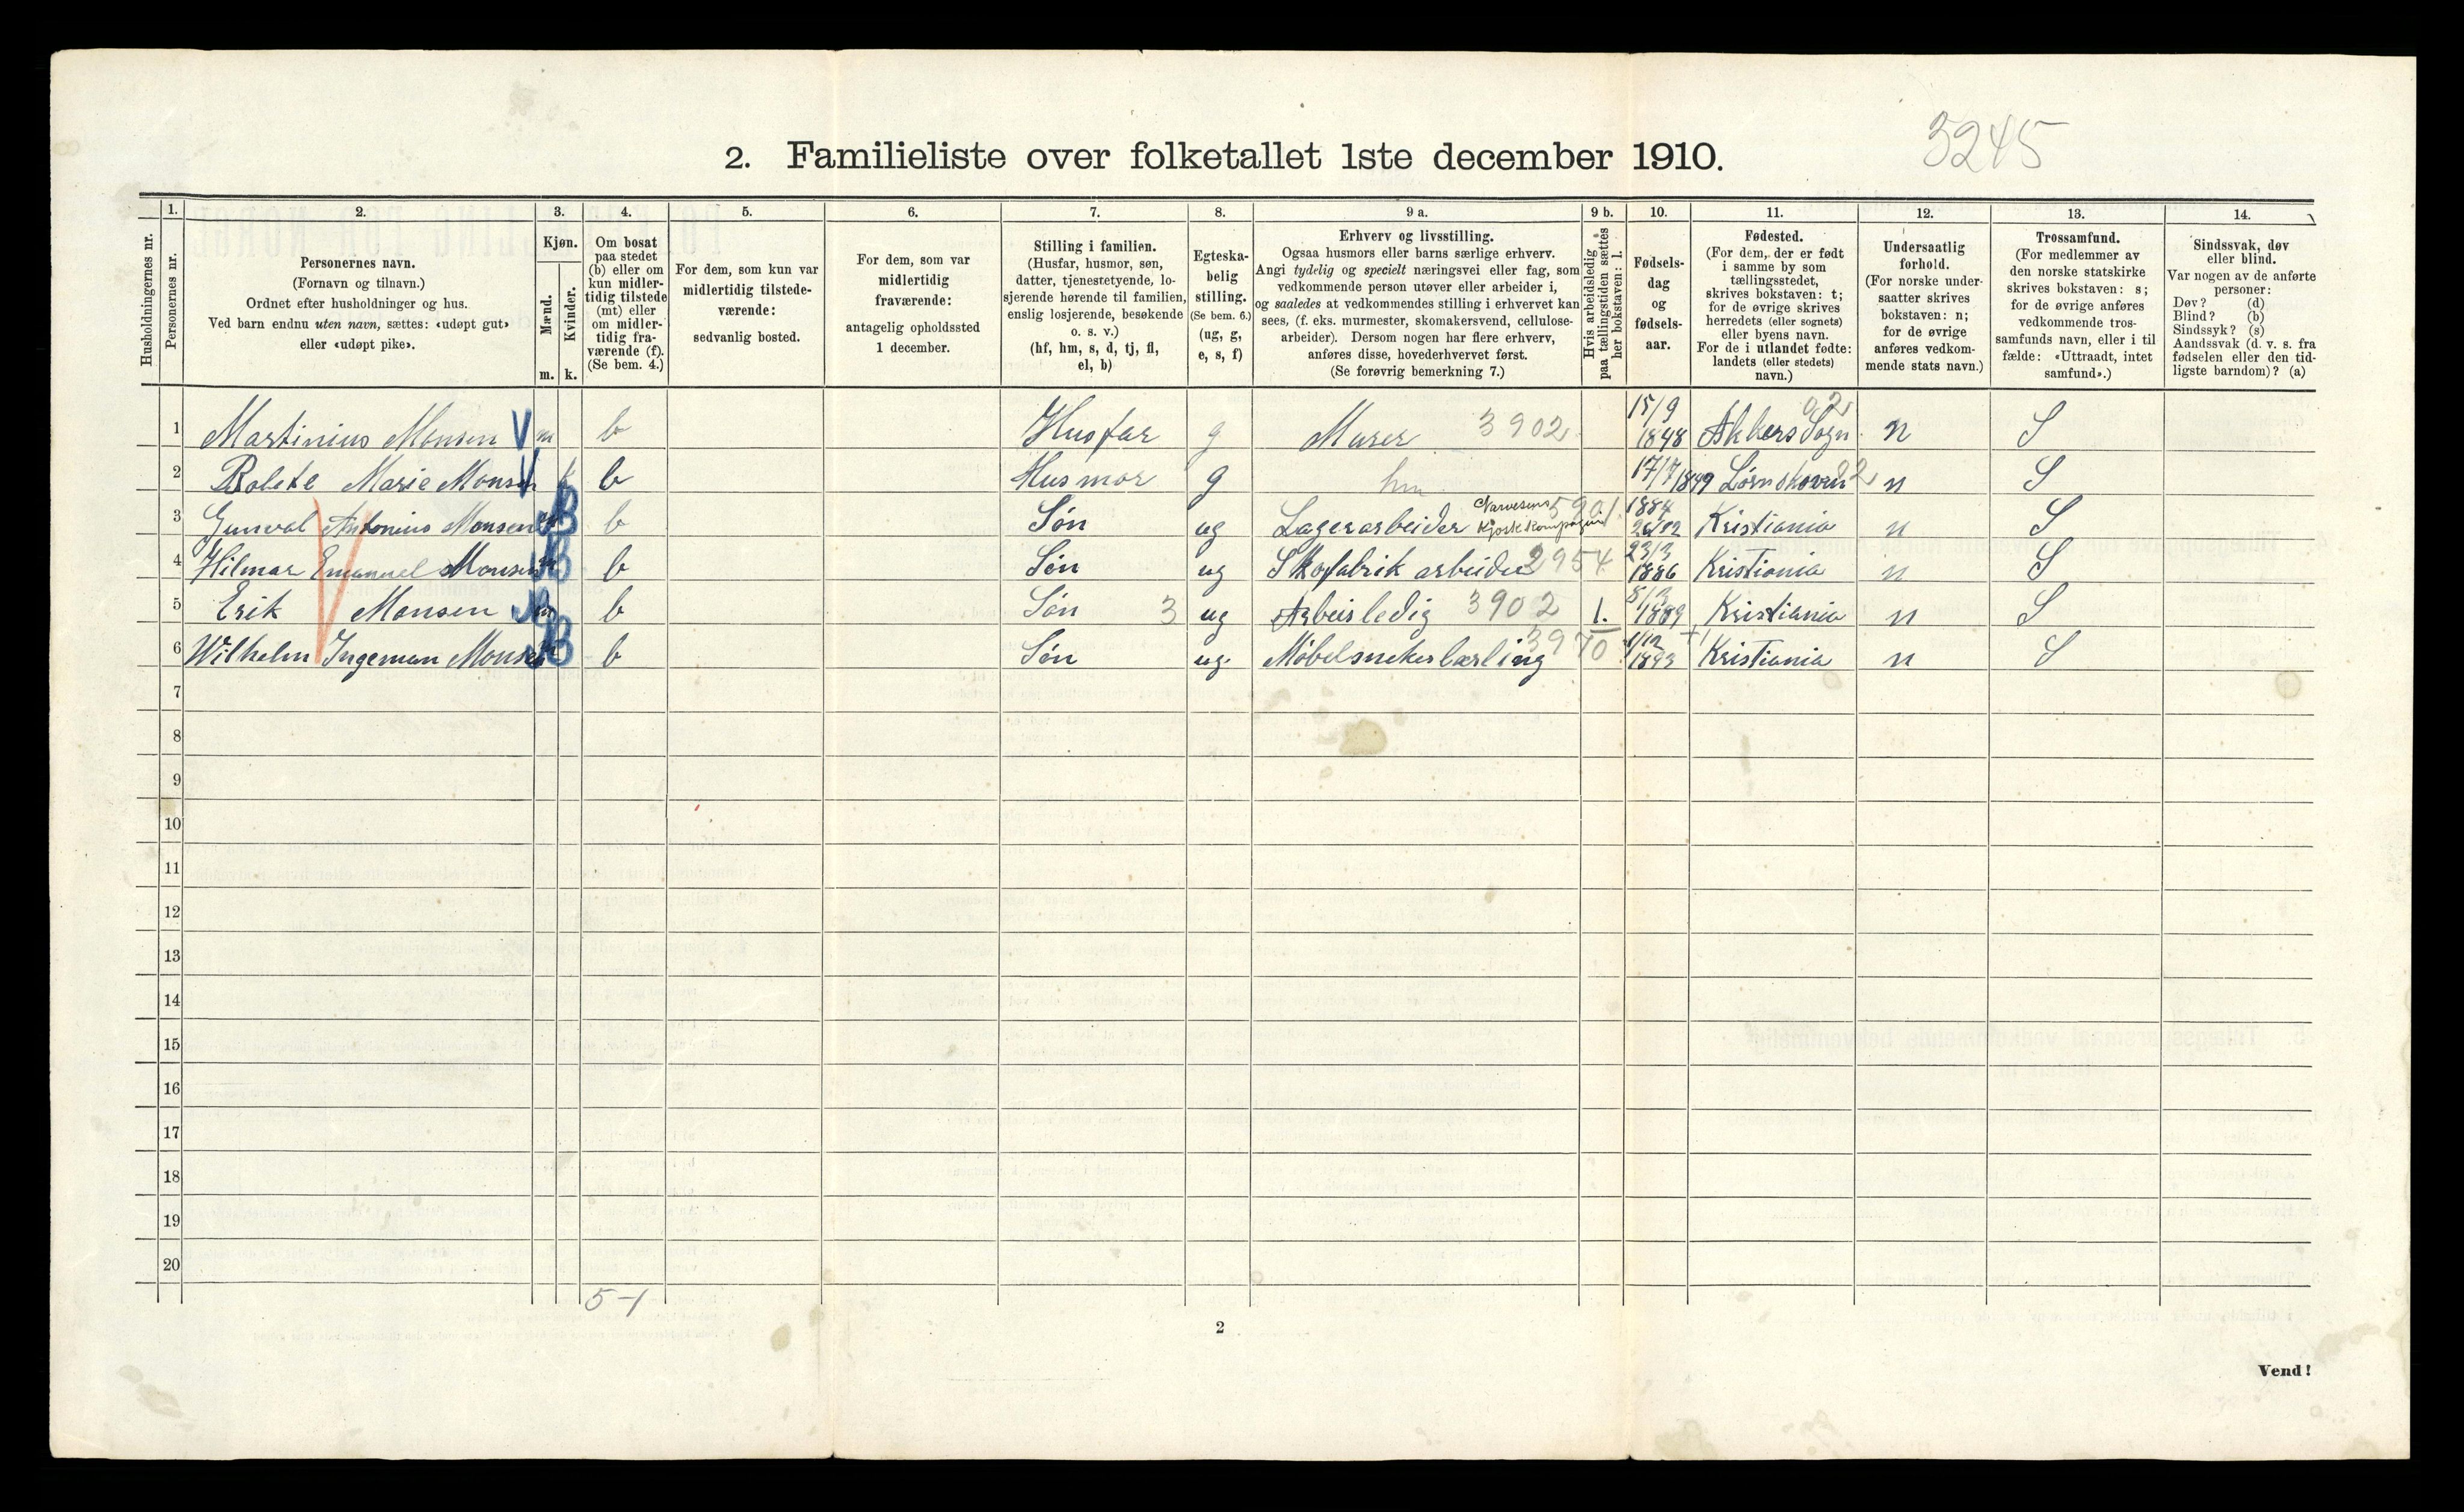 3245
2. Familieliste over folketallet 1ste december 1910.
Husholdningernes nr.
1. Personernes nr.
2. Personernes navn.
(Fornavn og tilnavn.)
Ordnet efter husholdninger og hus.
Ved barn endnu uten navn, sættes: «udøpt gut»
eller «udøpt pike».
3. Kjøn.
Mænd. m.
Kvinder. k.
4. Om bosat
paa stedet
(b) eller om
kun midler-
tidig tilstede
(mt) eller
om midler-
tidig fra-
værende (f).
(Se bem. 4.)
5. For dem, som kun var
midlertidig tilstede-
værende:
sedvanlig bosted.
6. For dem, som var
midlertidig
fraværende:
antagelig opholdssted
1 december.
7. Stilling i familien.
(Husfar, husmor, søn,
datter, tjenestetyende, lo-
sjerende hørende til familien,
enslig losjerende, besøkende
o. s. v.)
(hf, hm, s, d, tj, fl,
el, b)
8. Egteska-
belig
stilling.
(Se bem. 6.)
(ug, g,
e, s, f)
9 a. Erhverv og livsstilling.
Ogsaa husmors eller barns særlige erhverv.
Angi tydelig og specielt næringsvei eller fag, som
vedkommende person utøver eller arbeider i,
og saaledes at vedkommendes stilling i erhvervet kan
sees, (f. eks. murmester, skomakersvend, cellulose-
arbeider). Dersom nogen har flere erhverv,
anføres disse, hovederhvervet først.
(Se forøvrig bemerkning 7.)
9 b. Hvis arbeidsledig
paa tællingstiden sættes
her bokstaven: l.
10. Fødsels-
dag
og
fødsels-
aar.
11. Fødested.
(For dem, der er født
i samme by som
tællingsstedet,
skrives bokstaven: t;
for de øvrige skrives
herredets (eller sognets)
eller byens navn.
For de i utlandet fødte:
landets (eller stedets)
navn.)
12. Undersaatlig
forhold.
(For norske under-
saatter skrives
bokstaven: n;
for de øvrige
anføres vedkom-
mende stats navn.)
13. Trossamfund.
(For medlemmer av
den norske statskirke
skrives bokstaven: s;
for de øvrige anføres
vedkommende tros-
samfunds navn, eller i til-
fælde: «Uttraadt, intet
samfund».)
14. Sindssvak, døv
eller blind.
Var nogen av de anførte
personer:
Døv? (d)
Blind? (b)
Sindssyk? (s)
Aandssvak (d. v. s. fra
fødselen eller den tid-
ligste barndom)? (a)
1 Martinius Monsen V m b Husfar g Murer 3902 15/9 1848 Akkers Sogn 02 n S
2 Bolete Marie Monsen V k b Husmor g hm 17/7 1849 Lørnskoven n S
3 Gunval Antonius Monsen b Søn ug Lagerarbeider Narvesens Kjoskkompagni 1884 Kristiania n S
4 Hilmar Emanuel Monsen b Søn ug Skofabrik arbeider 2954 23/3 1886 Kristiania n S
5 Erik Monsen b Søn 3 ug Arbeisledig 3902 l. 1889 Kristiania n S
6 Wilhelm Ingeman Monsen b Søn ug. Møbelsnekerlærling 3970 1/12 1893 Kristiania n S
7
8
9
10
11
12
13
14
15
16
17
18
19
20
5-1
2
Vend!